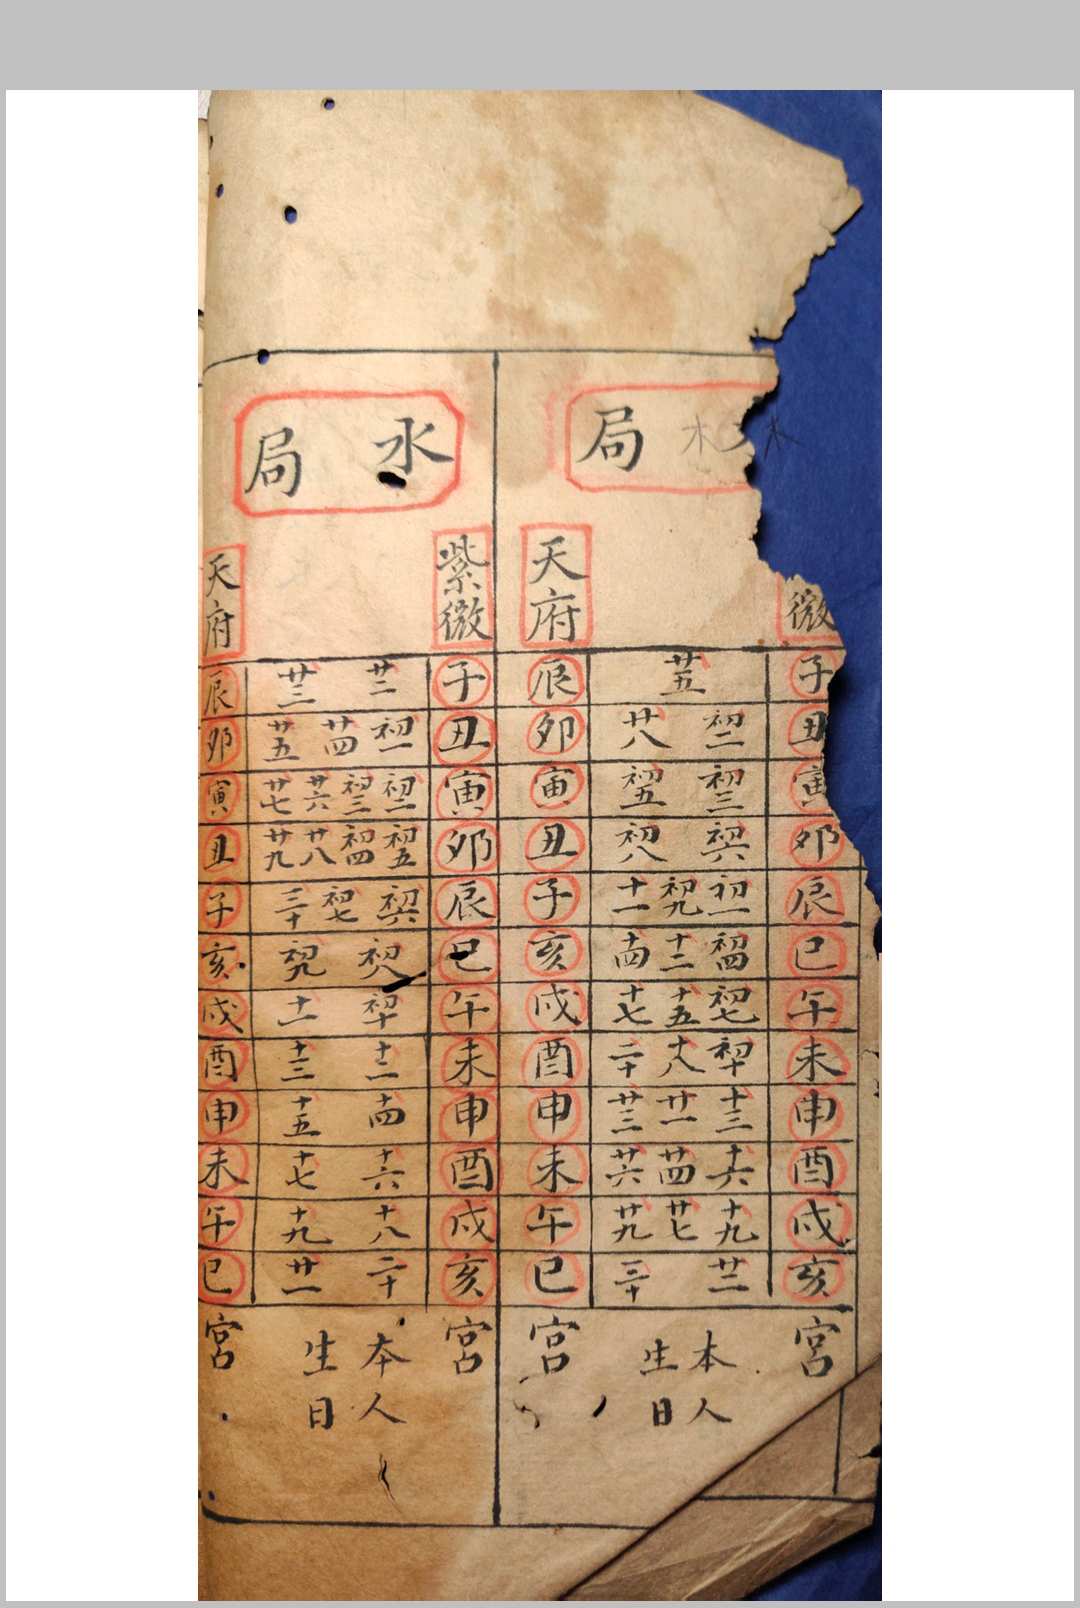 木局
微 天府
子 廿五 辰
丑 初二 廿八 卯
寅 初三 初五 寅
卯 初六 初八 丑
辰 初一 初九 十一 子
巳 初四 十二 十四 亥
午 初七 十五 十七 戌
未 初十 十八 二十 酉
申 十三 廿一 廿三 申
酉 十六 廿四 廿六 未
戌 十九 廿七 廿九 午
亥 廿二 三十 巳
宮 本人生日 宮
水局
紫微 天府
子 廿二 廿三 辰
丑 初一 廿四 廿五 卯
寅 初二 初三 廿六 廿七 寅
卯 初五 初四 廿八 廿九 丑
辰 初六 初七 三十 子
巳 初八 初九 亥
午 初十 十一 戌
未 十二 十三 酉
申 十四 十五 申
酉 十六 十七 未
戌 十八 十九 午
亥 二十 廿一 巳
宮 本人生日 宮